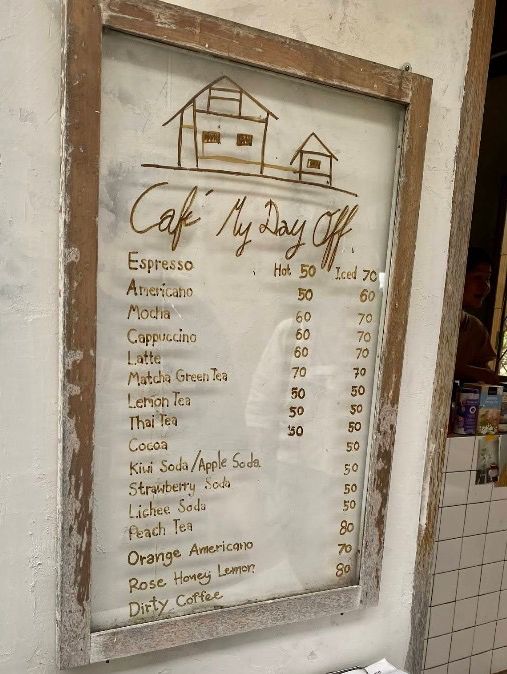 Café My Day Off
Espresso Hot 50 Iced 70
Americano 50 60
Mocha 60 70
Cappuccino 60 70
Latte 60 70
Matcha Green Tea 70 70
Lemon Tea 50 50
Thai Tea 50 50
Cocoa 50 50
Kiwi Soda/Apple Soda 50
Strawberry Soda 50
Lichee Soda 50
Peach Tea 50
Orange Americano 80
Rose Honey Lemon 70
Dirty Coffee 80